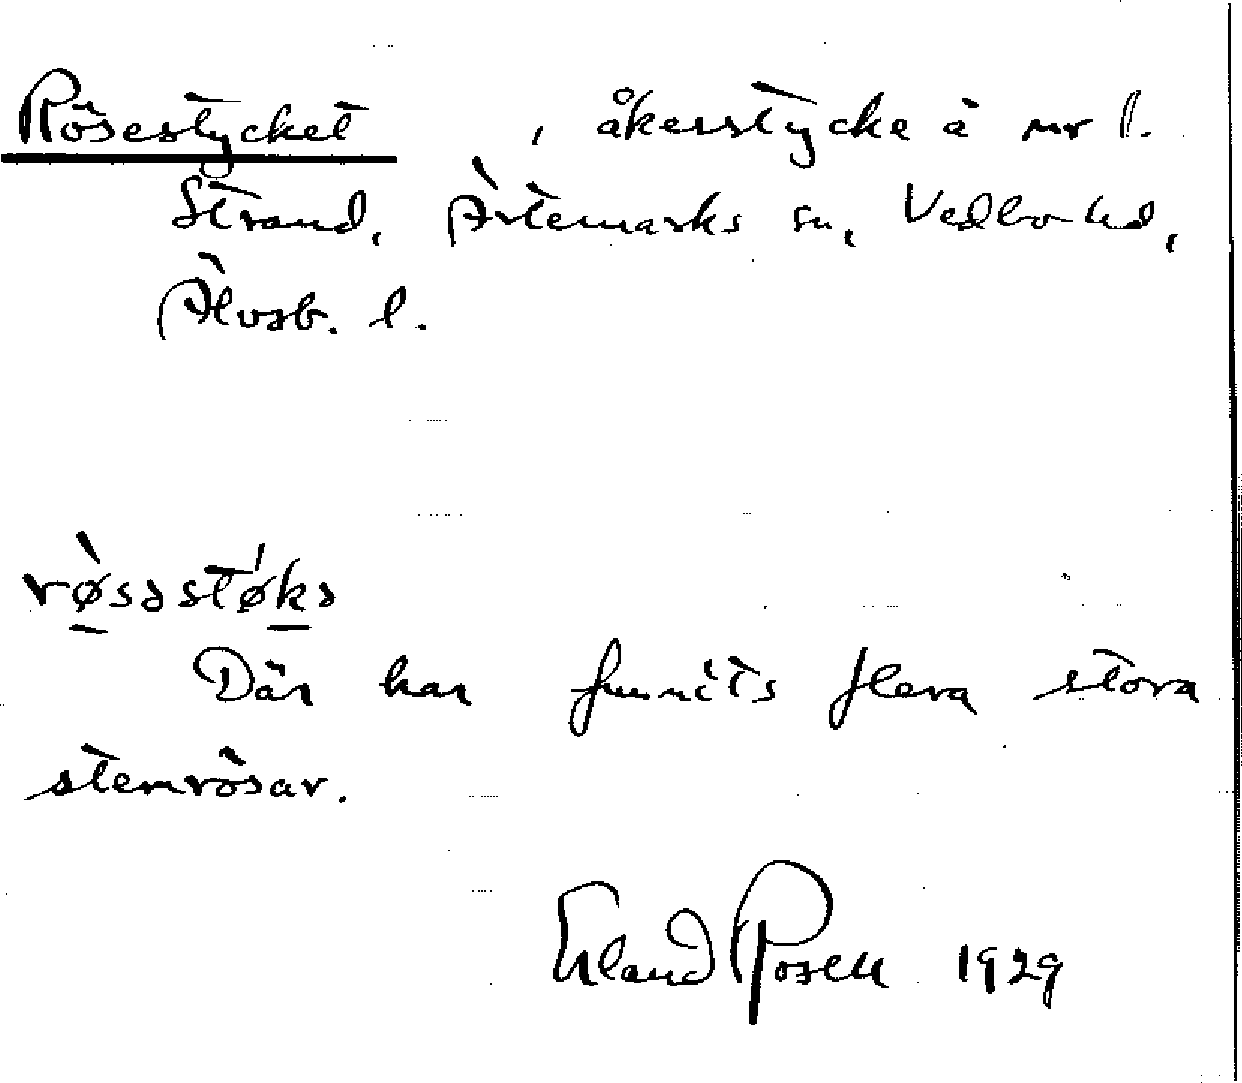 Rösestycket , åkerstycke å nr 1.
Strand, Ärtemarks sn, Vedbo hd,
Älvsb. l.
rø̀səstø̍kə
Där har funnits flera stora
stenrösar.
Erland Rosell 1929